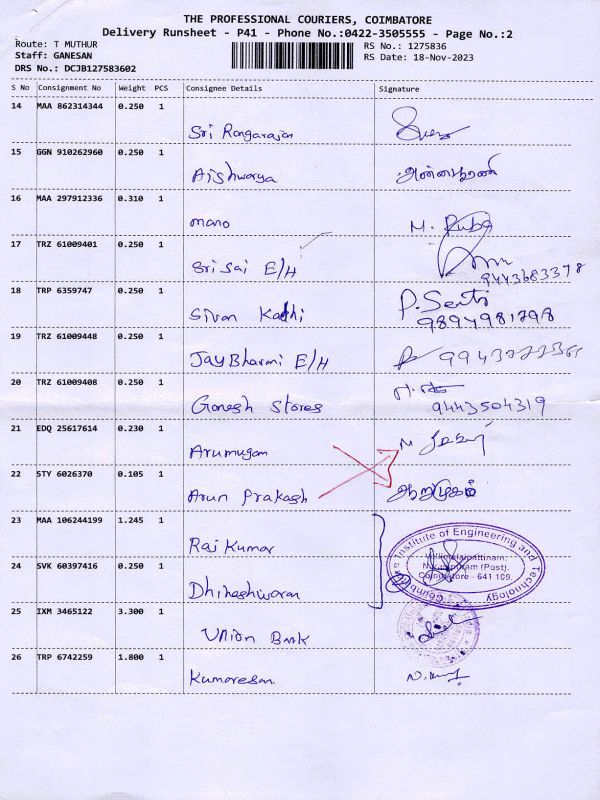 THE PROFESSIONAL COURIERS, COIMBATORE
Delivery Runsheet - P41 - Phone No.:0422-3505555 - Page No.:2
Route: T MUTHUR
RS No.: 1275836
Staff: GANESAN
RS Date: 18-Nov-2023
DRS No.: DCJB127583602
S No Consignment No Weight PCS Consignee Details Signature
14 MAA 862314344 0.250 1
Sri Rangarajan
15 GGN 910262960 0.250 1
Aishwarya அன்னபூரணி
16 MAA 297912336 0.310 1
mano M. Ruba
17 TRZ 61009401 0.250 1
Sri Sai E/H 9443683378
18 TRP 6359747 0.250 1
Sivan Kathi P. Senti
9894981798
19 TRZ 61009448 0.250 1
Jay Bharmi E/H
20 TRZ 61009408 0.250 1
Ganesh Stores 9443504319
21 EDQ 25617614 0.230 1
Arumugam
22 STY 6026370 0.105 1
Arun Prakash ஆறுமுகம்
23 MAA 106244199 1.245 1
Raj Kumar
24 SVK 60397416 0.250 1
Dhineshwaran
Coimbatore Institute of Engineering and Technology
Vellimalaipattinam,
Narasipuram (Post),
Coimbatore - 641 109.
25 IXM 3465122 3.300 1
Union Bank
26 TRP 6742259 1.800 1
Kumaresan